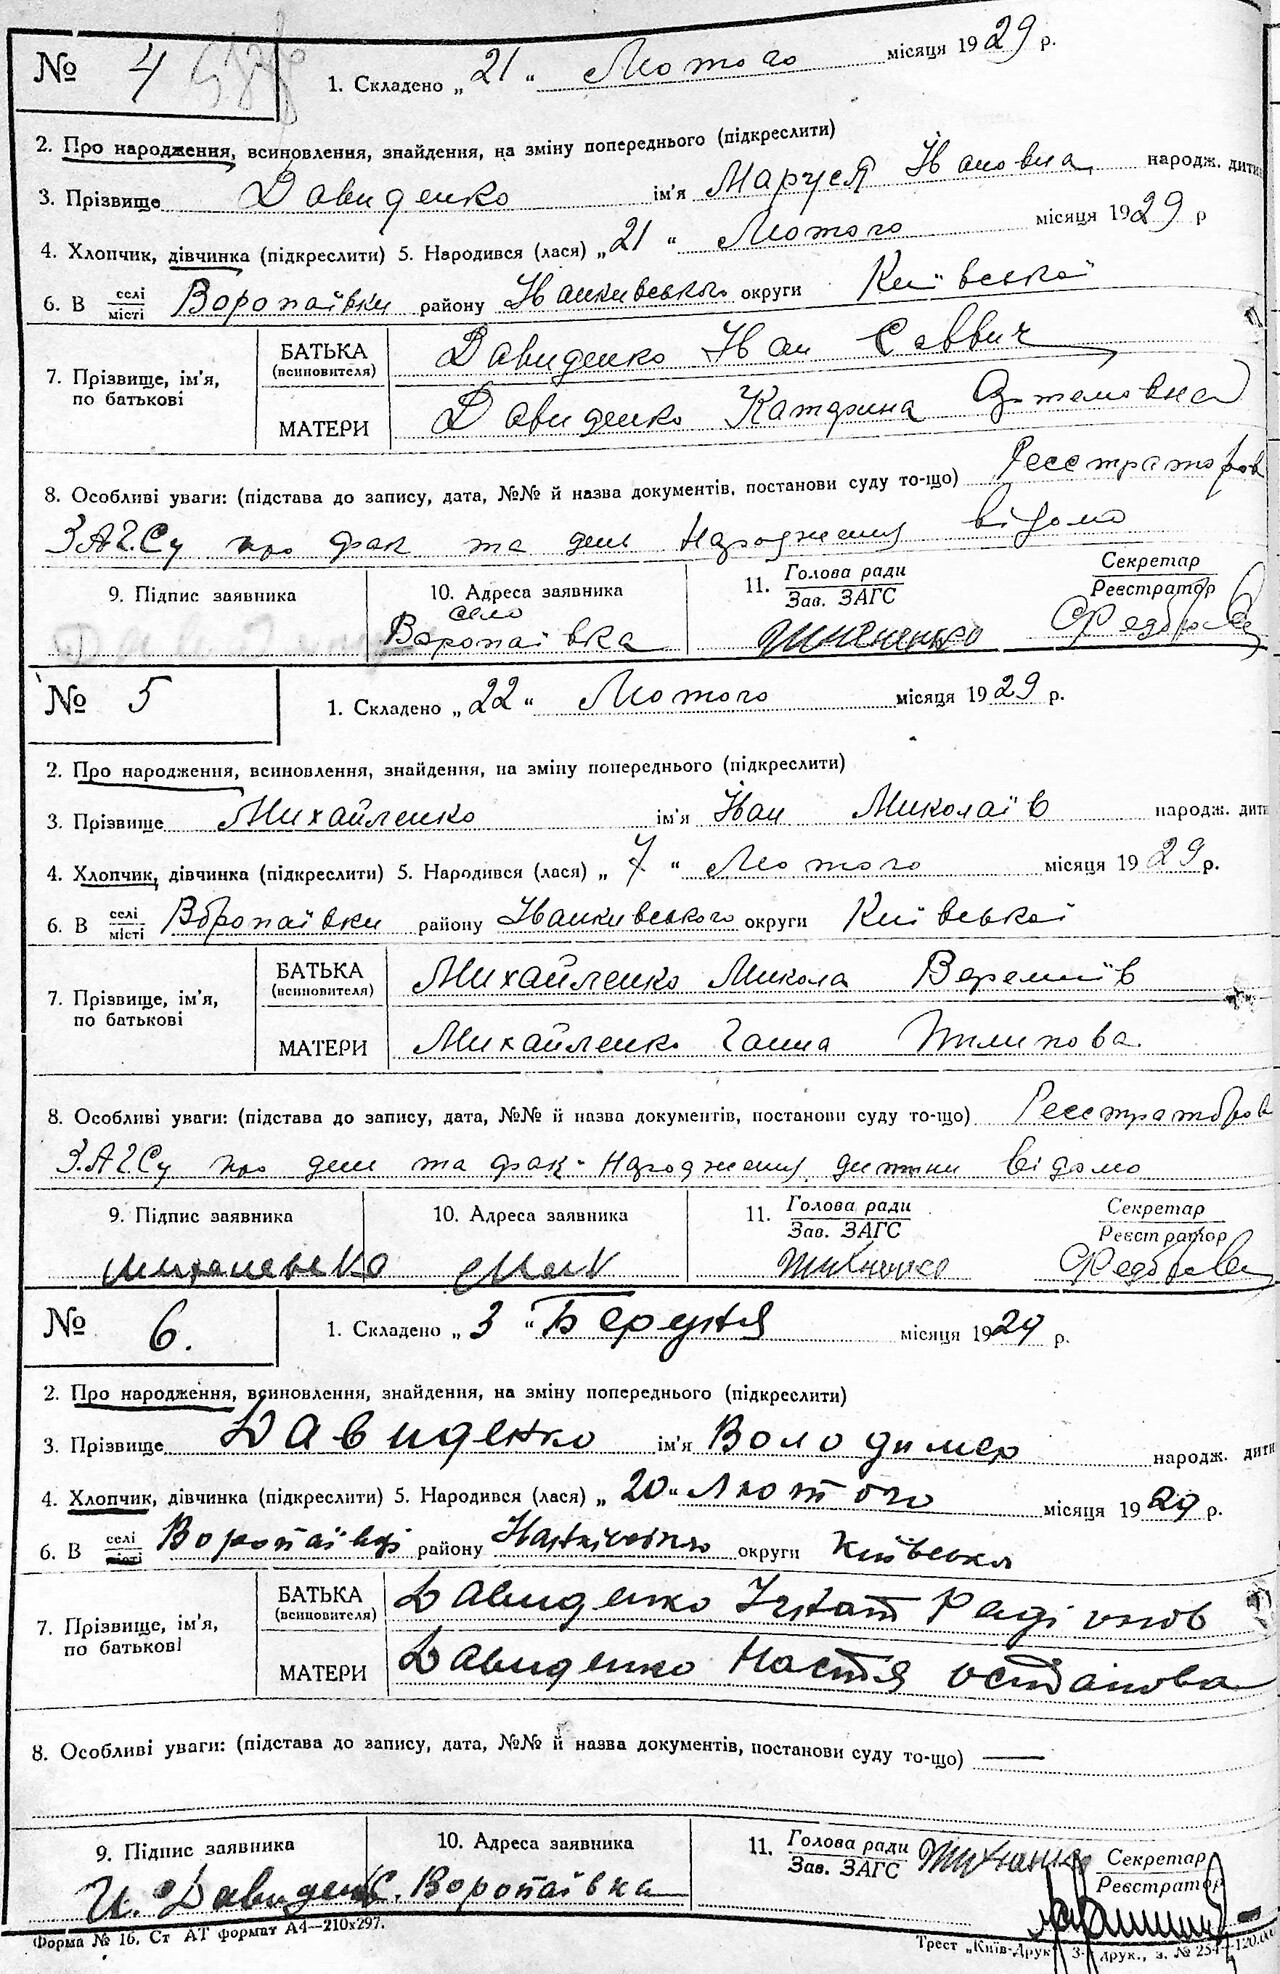 № 4
1. Складено „21“ Лютого місяця 1929 р.
2. Про народження, всиновлення, знайдення, на зміну попереднього (підкреслити)
3. Прізвище Давиденко ім'я Маруся Івановна народж. дити
4. Хлопчик, дівчинка (підкреслити) 5. Народився (лася) „21“ Лютого місяця 1929 р
6. В селі/місті Воропаївки району Іванкивського округи Київської
7. Прізвище, ім'я, по батькові
БАТЬКА (всиновителя) Давиденко Іван Саввич
МАТЕРИ Давиденко Катерина
8. Особливі уваги: (підстава до запису, дата, №№ й назва документів, постанови суду то-що) Реєстраторов
ЗАГСу про фак та день народження відомо
9. Підпис заявника 10. Адреса заявника 11. Голова ради/Зав. ЗАГС Секретар/Реєстратор
село
Воропаївка
№ 5
1. Складено „22“ Лютого місяця 1929 р.
2. Про народження, всиновлення, знайдення, на зміну попереднього (підкреслити)
3. Прізвище Михайленко ім'я Іван Миколаїв народж. дити
4. Хлопчик, дівчинка (підкреслити) 5. Народився (лася) „7“ Лютого місяця 1929 р.
6. В селі/місті Воропаївки району Іванкивського округи Київської
7. Прізвище, ім'я, по батькові
БАТЬКА (всиновителя) Михайленко Микола Вереміїв
МАТЕРИ Михайленко Ганна Пилипова
8. Особливі уваги: (підстава до запису, дата, №№ й назва документів, постанови суду то-що) Реєстраторов
З.АГСу про день та фак. народження дитини відомо
9. Підпис заявника 10. Адреса заявника 11. Голова ради/Зав. ЗАГС Секретар/Реєстратор
№ 6.
1. Складено „3“ Березня місяця 1929 р.
2. Про народження, всиновлення, знайдення, на зміну попереднього (підкреслити)
3. Прізвище Давиденко ім'я Володимер народж. дити
4. Хлопчик, дівчинка (підкреслити) 5. Народився (лася) „20“ Лютого місяця 1929 р.
6. В селі/місті Воропаївці району округи Київська
7. Прізвище, ім'я, по батькові
БАТЬКА (всиновителя) Давиденко Ігнат Радіонов
МАТЕРИ Давиденко Настя Остапова
8. Особливі уваги: (підстава до запису, дата, №№ й назва документів, постанови суду то-що) —
9. Підпис заявника 10. Адреса заявника 11. Голова ради/Зав. ЗАГС Секретар/Реєстратор
И. Давиденко С. Воропаївка
Форма № 16. Ст АТ формат А4—210х297.
Трест „Київ-Друк“ 3- друк., з. № 254—120.000